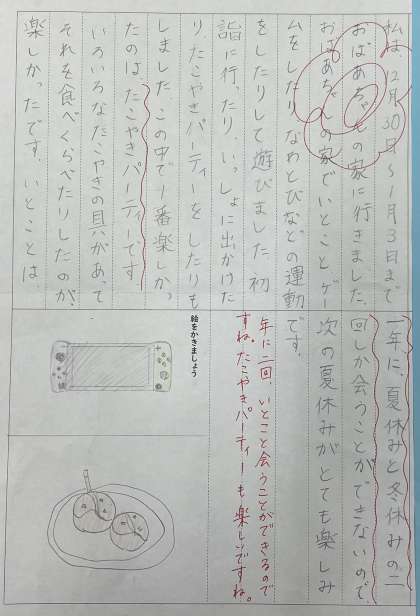 私は、12月30日~1月3日まで
おばあちゃんの家に行きました。
おばあちゃんの家でいとことゲー
ムをしたり、なわとびなどの運動
をしたりして遊びました。初
詣に行ったり、いっしょに出かけた
り、たこやきパーティーをしたりも
しました。この中で1番楽しかっ
たのは、たこやきパーティーです。
いろいろなたこやきの具があって
それを食べくらべたりしたのが、
楽しかったです。いとことは、
一年に、夏休みと冬休みの二
回しか会うことができないので、
次の夏休みがとても楽しみ
です。
年に二回、いとこと会うことができるので
すね。たこやきパーティーも楽しいですね。
絵をかきましょう